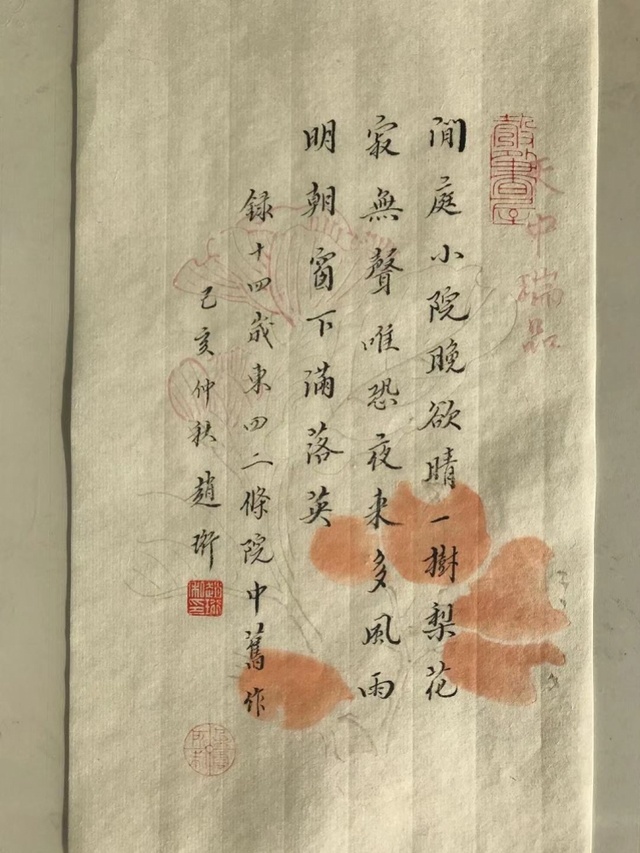 天中瑞品
閒庭小院晚欲晴一樹梨花
寂無聲唯恐夜來多風雨
明朝窗下滿落英
錄十四歲東四二條院中舊作
己亥仲秋趙珩